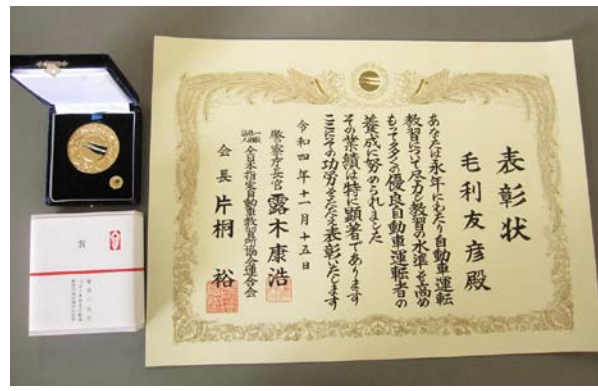 表彰状
毛利友彦殿
あなたは永年にわたり自動車運転
教習について尽力し教習の水準を高め
もって多くの優良自動車運転者の
養成に努められました
その業績は特に顕著であります
ここにその功労をたたえ表彰いたします
令和四年十一月十五日
警察庁長官 露木康浩
一般社団法人 全日本指定自動車教習所協会連合会
会長 片桐 裕
賞